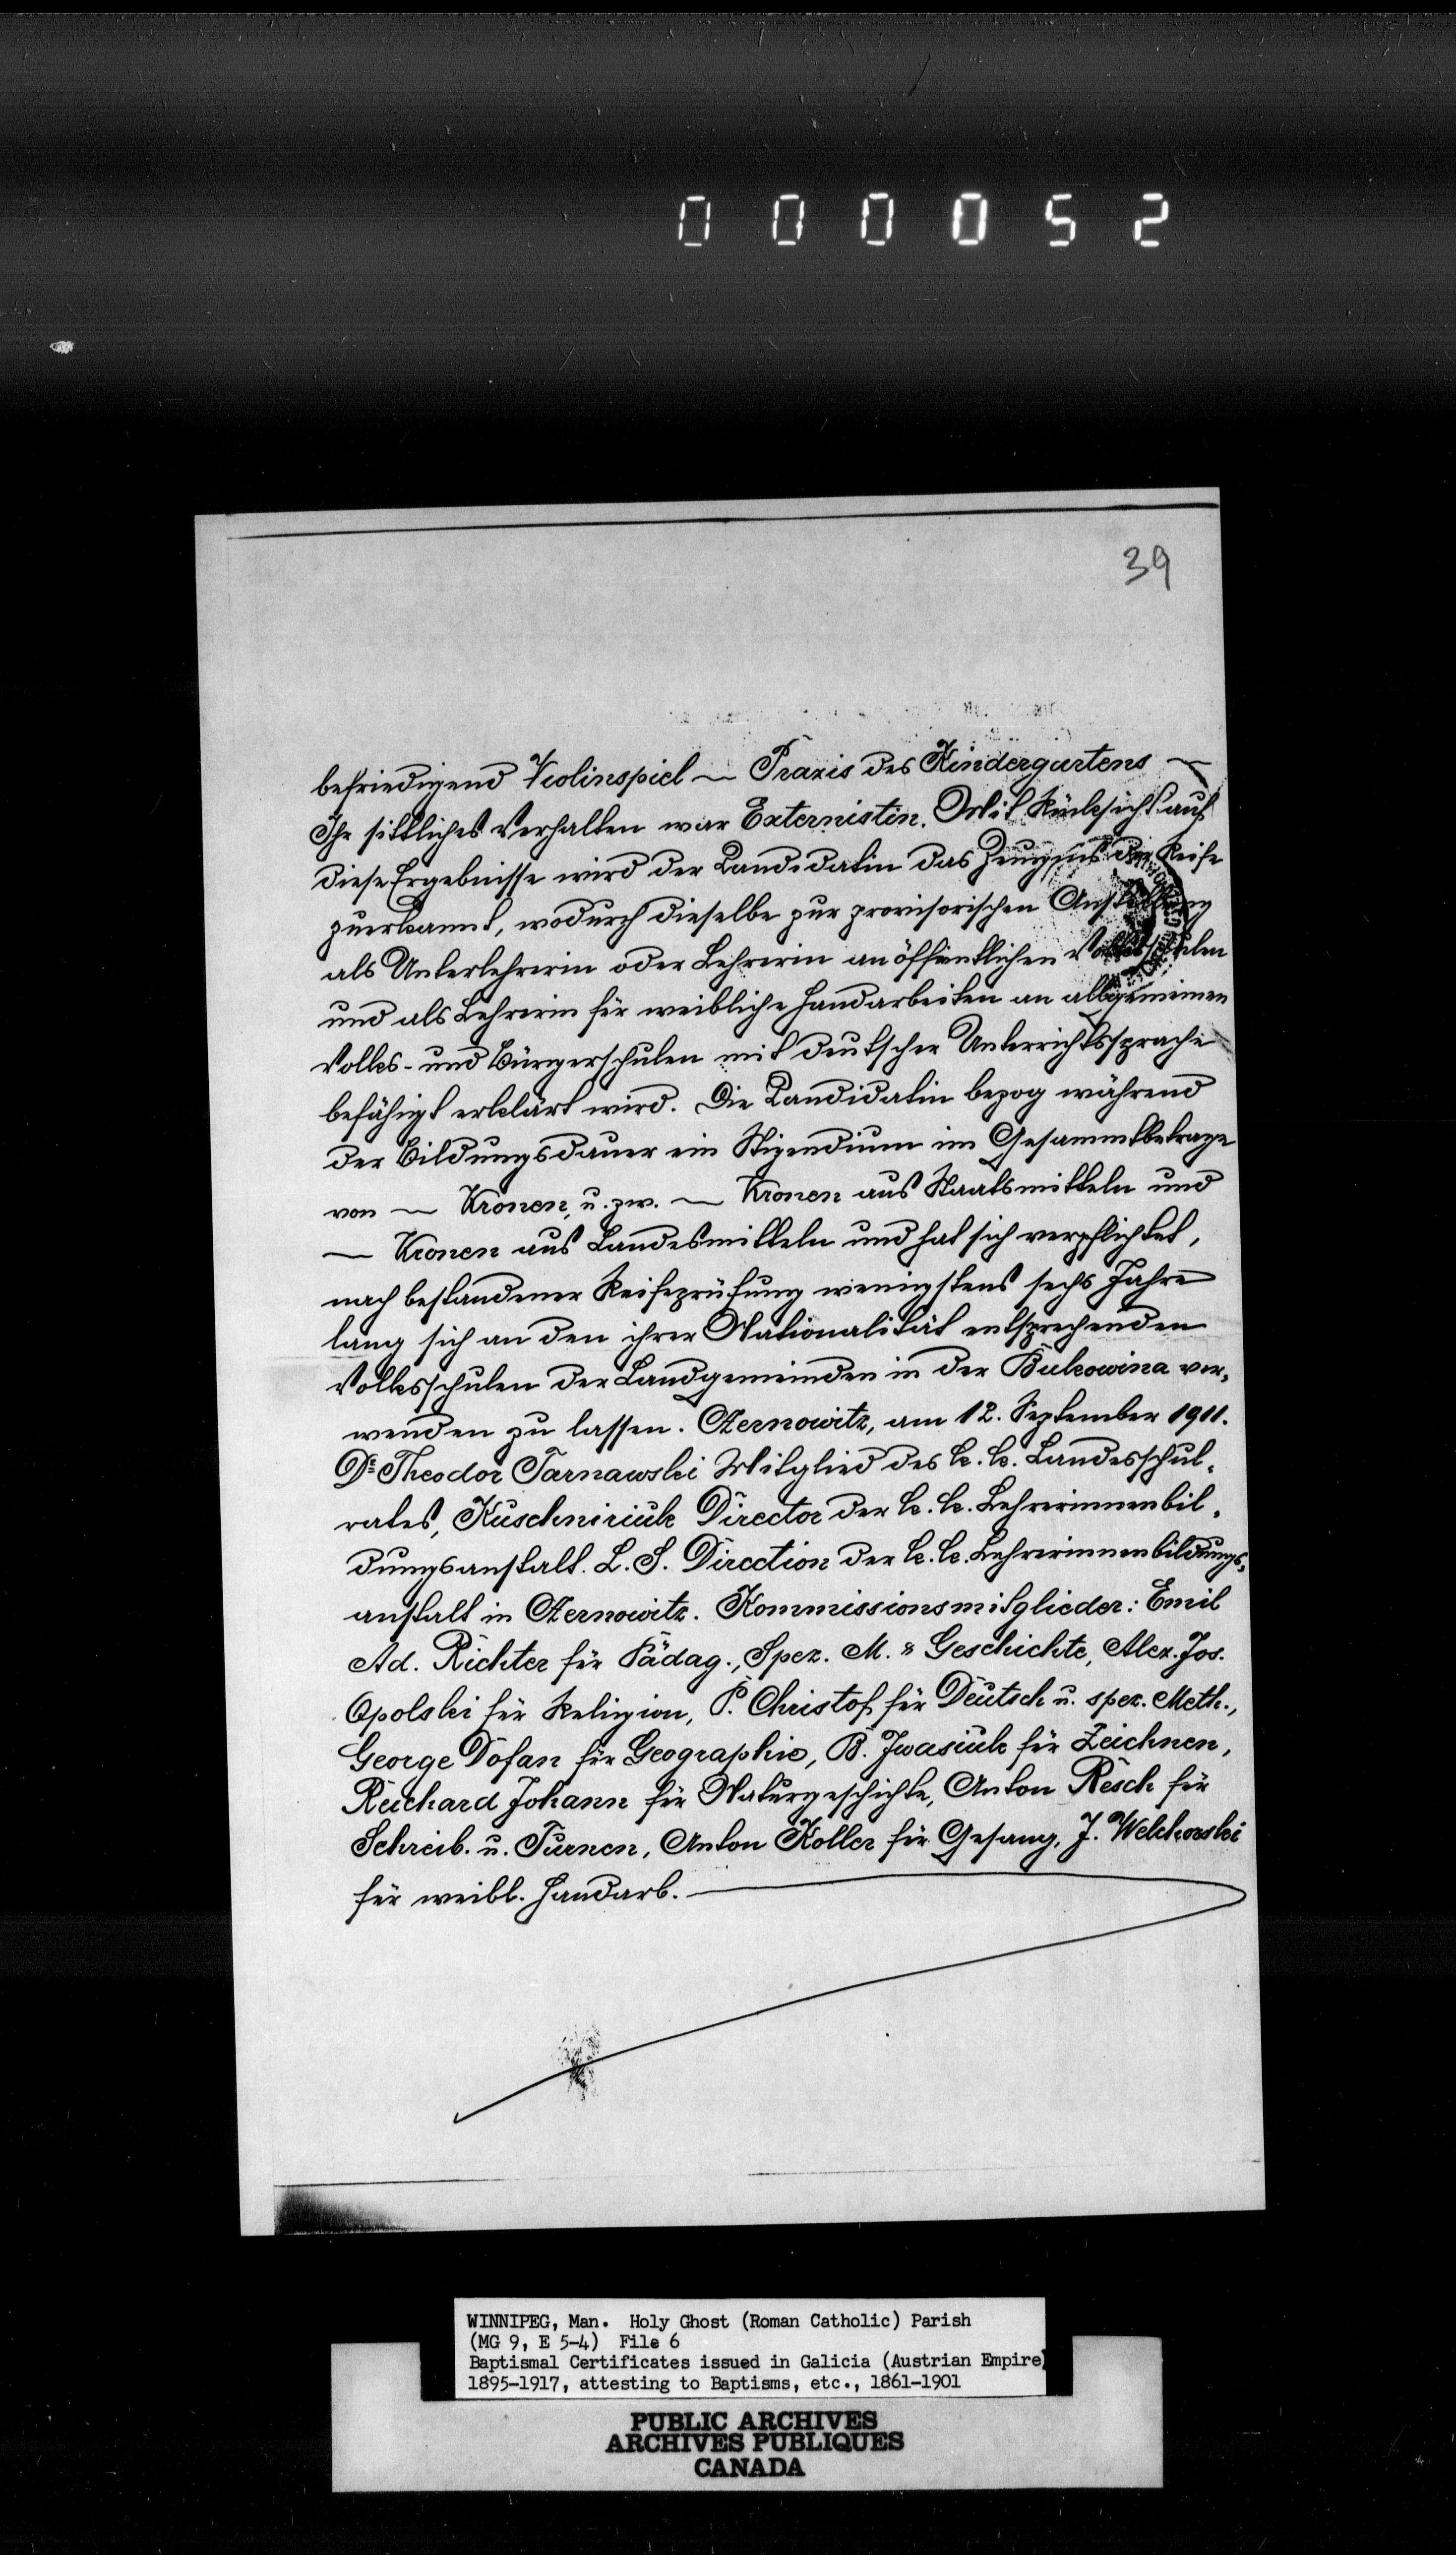 000052
39
befriedigend Violinspiel — Praxis des Kindergartens —
Ihr sittliches Verhalten war Externistin. Mit Rücksicht auf
diese Ergebnisse wird der Candidatin das Zeugnis der Reife
zuerkannt, wodurch dieselbe zur provisorischen Anstellung
als Unterlehrerin oder Lehrerin an öffentlichen Volksschulen
und als Lehrerin für weibliche Handarbeiten an allgemeinen
Volks- und Bürgerschulen mit deutscher Unterrichtssprache
befähigt erklärt wird. Die Candidatin bezog während
der Bildungsdauer ein Stipendium im Gesammtbetrage
von — Kronen, u. zw. — Kronen aus Staatsmitteln und
— Kronen aus Landesmitteln und hat sich verpflichtet,
nach bestandener Reifeprüfung wenigstens sechs Jahre
lang sich an den ihrer Nationalität entsprechenden
Volksschulen der Landgemeinden in der Bukowina ver-
wenden zu lassen. Czernowitz, am 12. September 1911.
Dr Theodor Tarnawski Mitglied des k. k. Landesschul-
rates, Kuschniriuk Director der k. k. Lehrerinnenbil-
dungsanstalt. L. S. Direction der k. k. Lehrerinnenbildungs-
anstalt in Czernowitz. Kommissionsmitglieder: Emil
Ad. Richter für Pädag., Spez. M. & Geschichte, Alex. Jos.
Opolski für Religion, P. Christof für Deutsch u. spez. Meth.,
George Dofan für Geographie, B. Jwasiuk für Zeichnen,
Reichard Johann für Naturgeschichte, Anton Resch für
Schreib. u. Turnen, Anton Koller für Gesang, J. Welehorski
für weibl. Handarb.
WINNIPEG, Man. Holy Ghost (Roman Catholic) Parish
(MG 9, E 5-4) File 6
Baptismal Certificates issued in Galicia (Austrian Empire)
1895-1917, attesting to Baptisms, etc., 1861-1901
PUBLIC ARCHIVES
ARCHIVES PUBLIQUES
CANADA